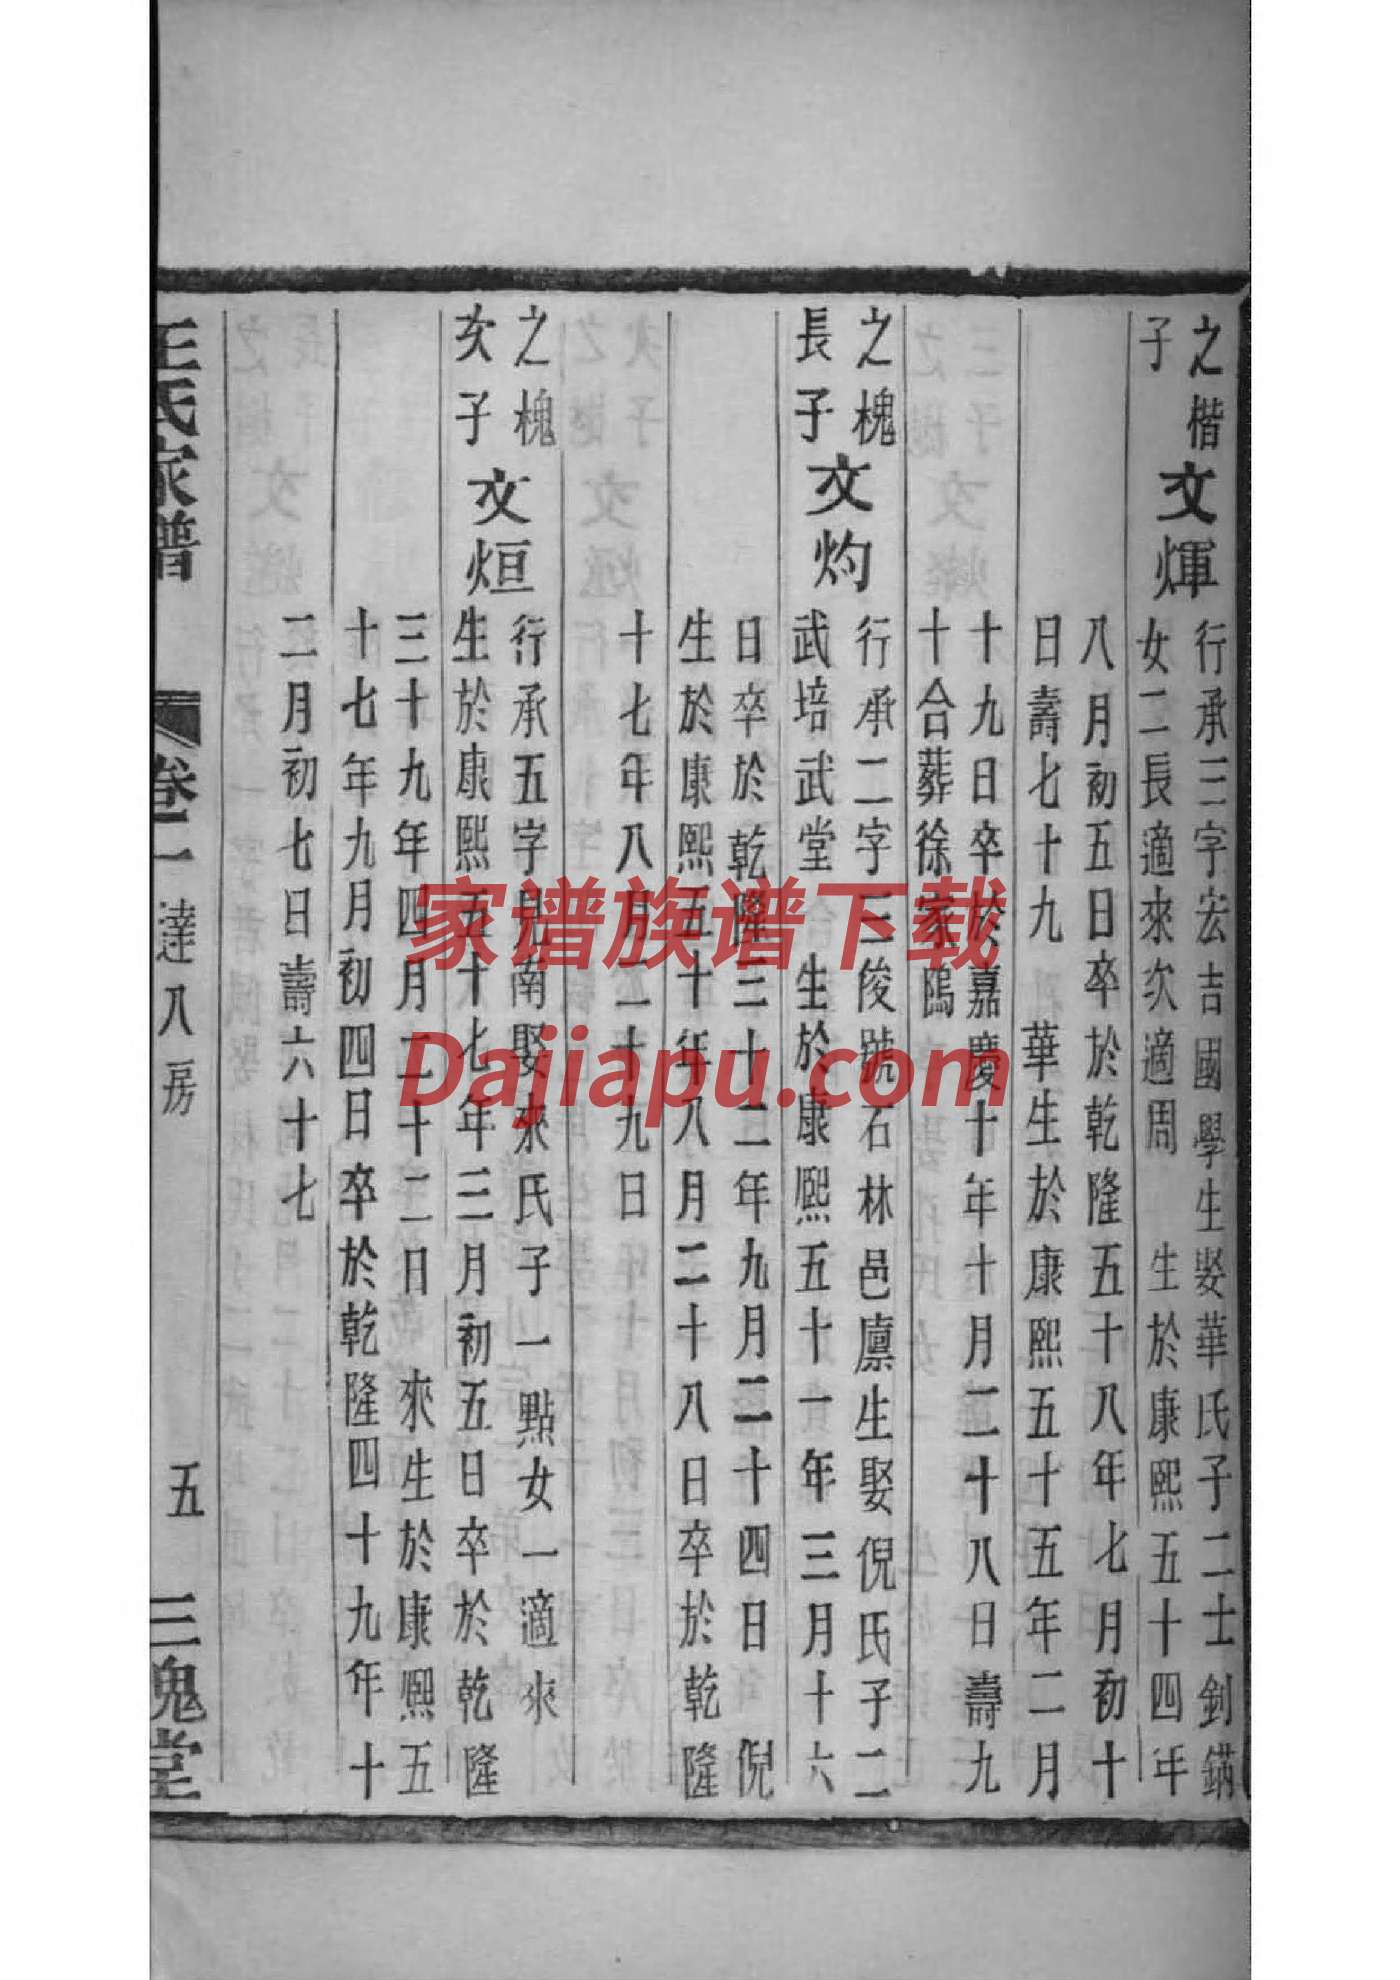 之楷
子
文煇
行承三字宏吉國學生娶華氏子二士釗鏋
女二長適來次適周 生於康熙五十四年
八月初五日卒於乾隆五十八年七月初十
日壽七十九 華生於康熙五十五年二月
十九日卒於嘉慶十年十月二十八日壽九
十合葬徐家隖
之槐
長子
文灼
行承二字三俊號石林邑廪生娶倪氏子二
武培武堂 生於康熙五十一年三月十六
日卒於乾隆三十二年九月二十四日 倪
生於康熙五十年八月二十八日卒於乾隆
十七年八月二十九日
之槐
次子
文烜
行承五字見南娶來氏子一點女一適來
生於康熙五十七年三月初五日卒於乾隆
三十九年四月二十二日 來生於康熙五
十七年九月初四日卒於乾隆四十九年十
二月初七日壽六十七
王氏家譜
卷二 達八房
五
三槐堂
家谱族谱下载
Dajiapu.com